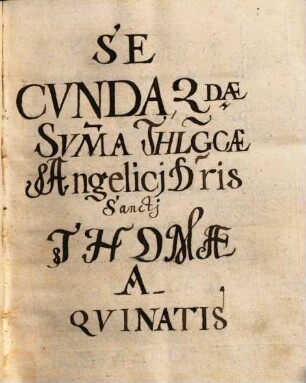 S'E
CVNDA, 2dæ
SVM̃A THLGCÆ
Angelicj D̃ris
Sanctj
THOMÆ
A-
QVINATIS